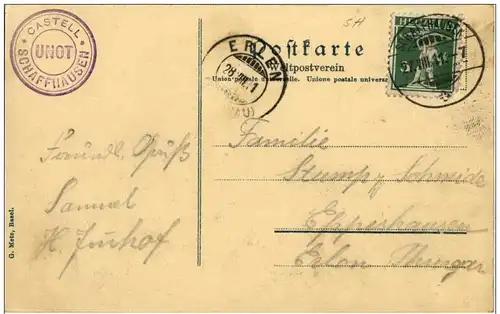 CASTELL
UNOT
SCHAFFHAUSEN
SH
Postkarte
Weltpostverein
Union postale universelle. Unione postale universale
ERLEN
28.III.1
SCHAFFHAUSEN
Freundl. Gruß
Samuel
H. Imhof
Familie
Stump z. Schmiede
Eppishausen
Erlen Thurgau
G. Metz, Basel.